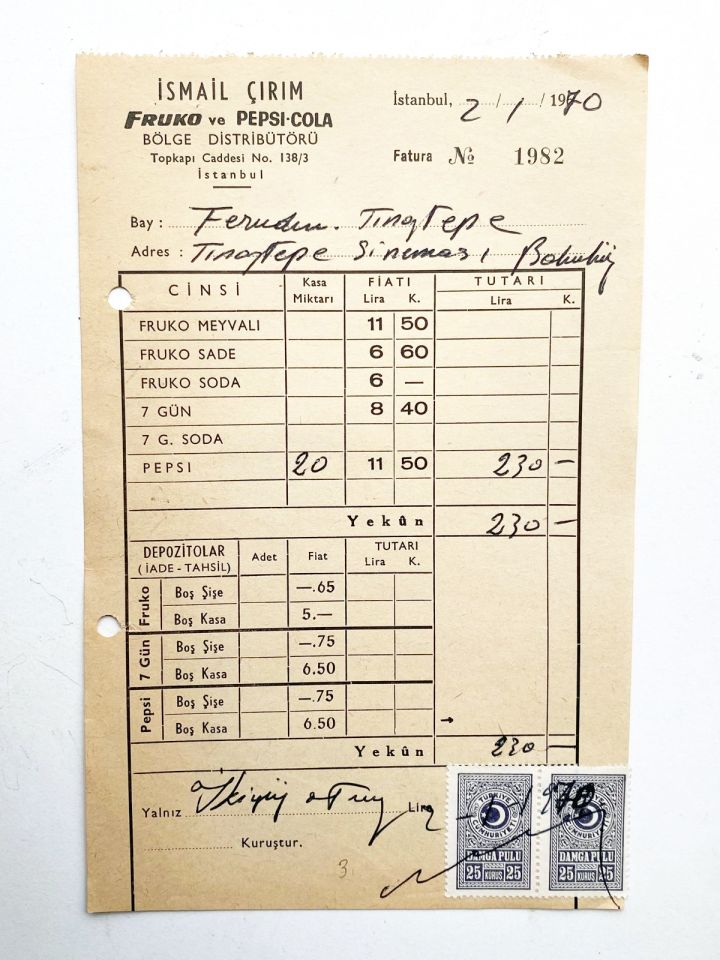 İSMAİL ÇIRIM
FRUKO ve PEPSI-COLA
BÖLGE DİSTRİBÜTÖRÜ
Topkapı Caddesi No. 138/3
İstanbul
İstanbul, 2 / 1 / 1970
Fatura № 1982
Bay : Ferudun Tınaztepe
Adres : Tınaztepe Sineması Bakırköy
CİNSİ Kasa Miktarı FİATI Lira K. TUTARI Lira K.
FRUKO MEYVALI 11 50
FRUKO SADE 6 60
FRUKO SODA 6 —
7 GÜN 8 40
7 G. SODA
PEPSI 20 11 50 230 —
Yekûn 230 —
DEPOZİTOLAR (İADE - TAHSİL) Adet Fiat TUTARI Lira K.
Fruko Boş Şişe —.65
Boş Kasa 5.—
7 Gün Boş Şişe —.75
Boş Kasa 6.50
Pepsi Boş Şişe —.75
Boş Kasa 6.50 →
Yekûn 230 —
Yalnız İkiyüz otuz Lira
Kuruştur.
2-1-1970
TÜRKİYE CUMHURİYETİ
DAMGA PULU
25 KURUŞ 25
TÜRKİYE CUMHURİYETİ
DAMGA PULU
25 KURUŞ 25
3